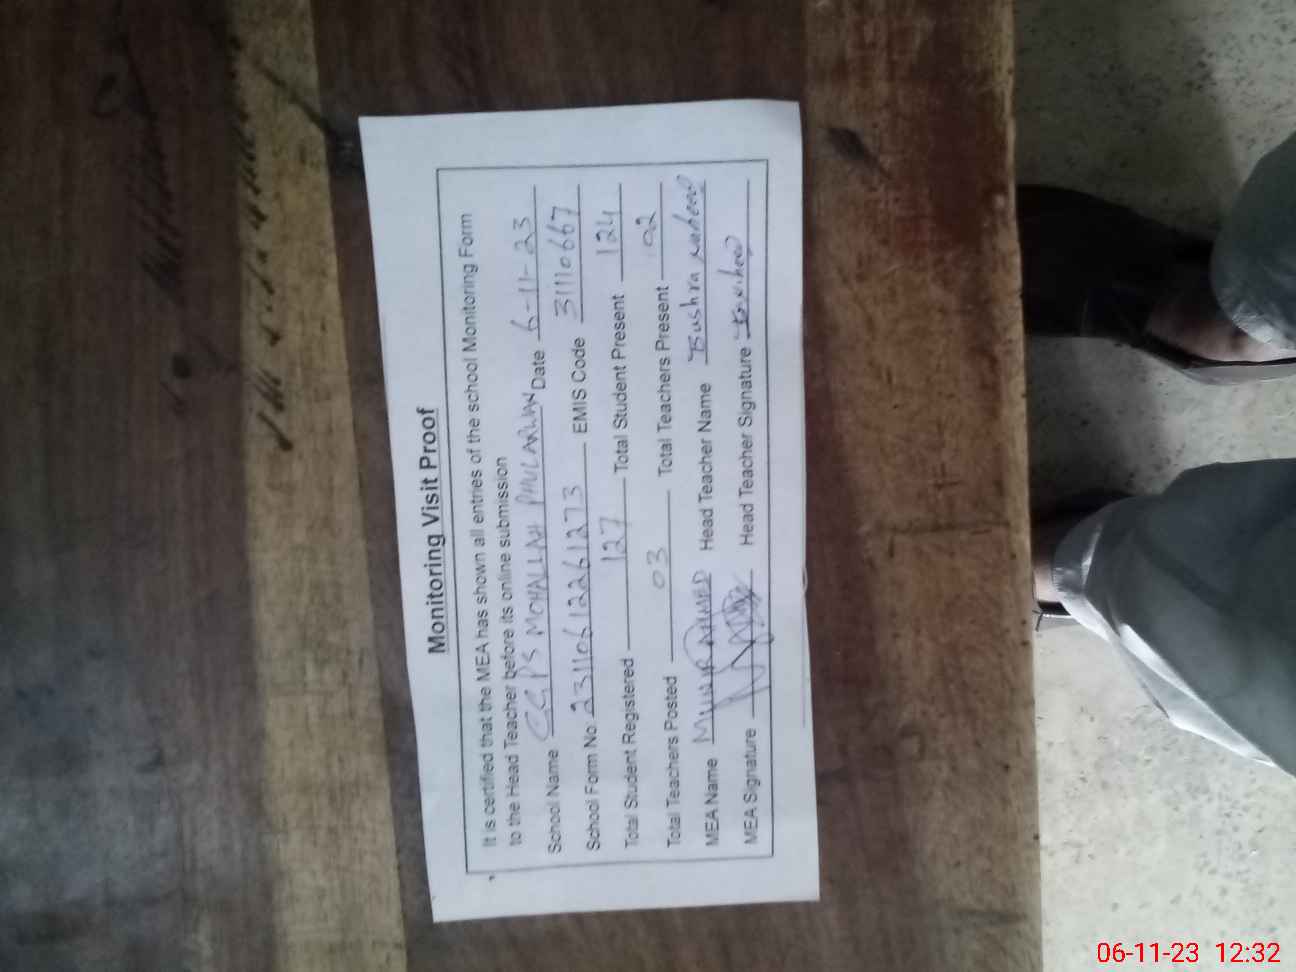 Monitoring Visit Proof
It is certified that the MEA has shown all entries of the school Monitoring Form
to the Head Teacher before its online submission
School Name GGPS MOHALLAH PHULARWAN Date 6-11-23
School Form No. 23110612261273 EMIS Code 31110667
Total Student Registered 127 Total Student Present 124
Total Teachers Posted 03 Total Teachers Present 02
MEA Name MUNIR AHMED Head Teacher Name Bushra
MEA Signature Head Teacher Signature
06-11-23 12:32